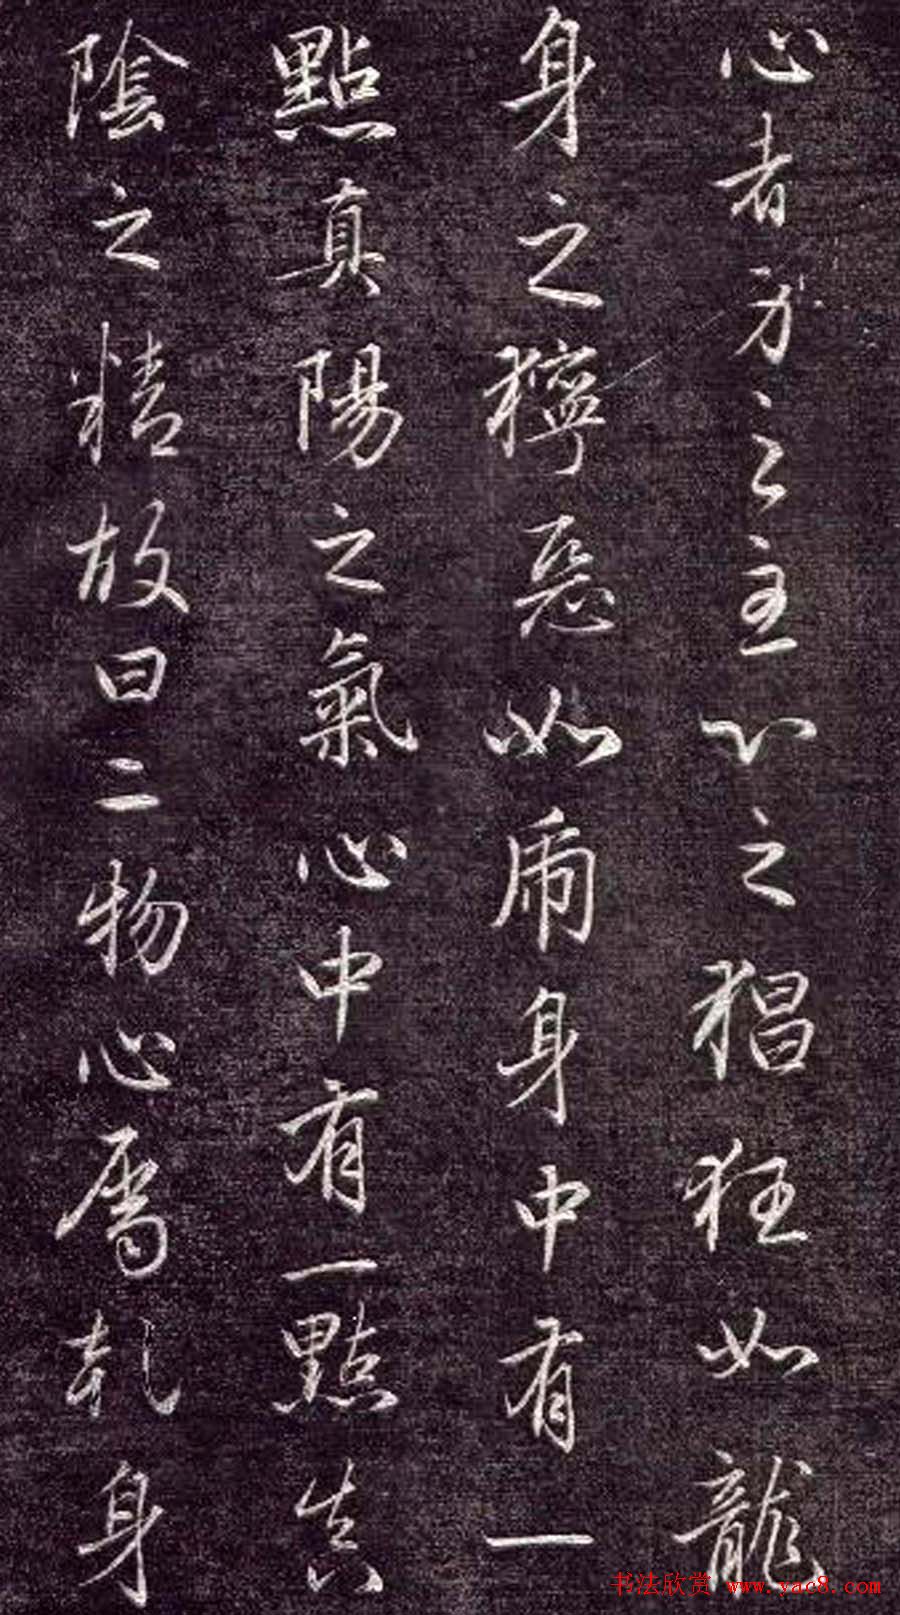 心者身之主心之猖狂如龍
身之獰惡如虎身中有一
點真陽之氣心中有一點真
陰之精故曰二物心屬乾身
书法欣赏 www.yac8.com